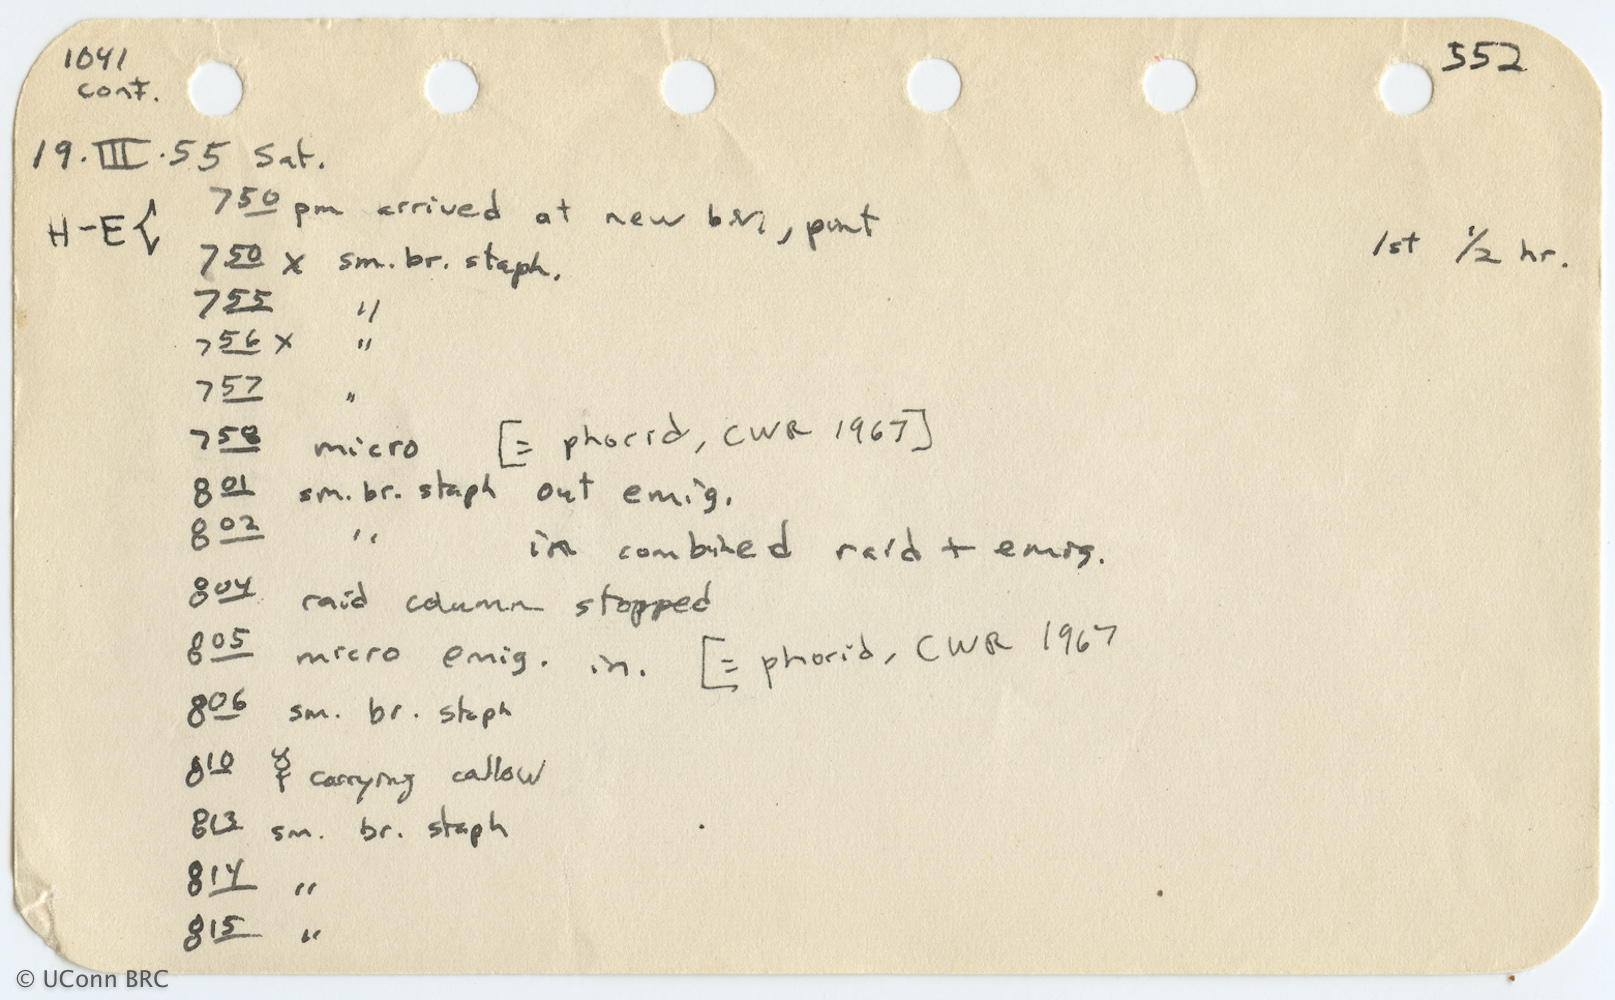 1041 cont. 552
19.III.55 Sat.
H-E { 7 50 pm arrived at new biv, point
1st 1/2 hr.
7 50 x sm. br. staph.
7 55 "
7 56 x "
7 57 "
7 58 micro [= phorid, CWR 1967]
8 01 sm. br. staph out emig.
8 02 " in combined raid + emig.
8 04 raid column stopped
8 05 micro emig. in. [= phorid, CWR 1967
8 06 sm. br. staph
8 10 ☿ carrying callow
8 13 sm. br. staph
8 14 "
8 15 "
© UConn BRC